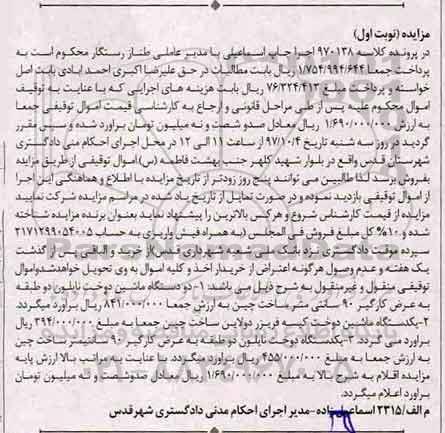 مزایده (نوبت اول)
در پرونده کلاسه ۹۷۰۱۳۸ اجرا چاپ اسماعیلی با مدیر عاملی طناز رستگار محکوم است به
پرداخت جمعا ۱/۷۵۴/۹۹۴/۶۴۴ ریال بابت مطالبات در حق علیرضا اکبری احمد ابادی بابت اصل
خواسته و پرداخت مبلغ ۷۶/۳۲۴/۴۱۳ ریال بابت هزینه های اجرایی که با عنایت به توقیف
اموال محکوم علیه پس از طی مراحل قانونی و ارجاع به کارشناسی قیمت اموال توقیفی جمعا
به ارزش ۱/۶۹۰/۰۰۰/۰۰۰ ریال معادل صدو شصت و نه میلیون تومان براورد شده و سپس مقرر
گردید در روز سه شنبه تاریخ ۹۷/۱۰/۴ از ساعت ۱۱ الی ۱۲ در محل اجرای احکام منی دادگستری
شهرستان قدس واقع در بلوار شهید کلهر جنب بهشت فاطمه (س) اموال توقیفی از طریق مزایده
بفروش برسد لذا طالبین می توانند پنج روز زودتر از تاریخ مزایده با اطلاع و هماهنگی این اجرا
از اموال توقیفی بازدید نموده و در صورت تمایل از تاریخ یاد شده در مراسم مزایده شرکت نمایید
مزایده از قیمت کارشناس شروع و هرکس بالاترین را پیشنهاد نماید بعنوان برنده مزایده شناخته
شده و ۱۰% کل مبلغ فروش فی المجلس (به همراه فیش واریزی به حساب ۲۱۷۱۲۹۹۰۵۴۰۰۵
سپرده موقت دادگستری نزد بانک ملی شعبه شهرداری قدس از خرید و الباقی پس از گذشت
یک هفته و عدم وصول هرگونه اعتراض از خریدار اخذ و کلیه اموال به وی تحویل خواهدشد واموال
توقیفی منقول و غیرمنقول به شرح ذیل می باشد: ۱-دو دستگاه ماشین دوخت نایلون دو طبقه
به عرض کارگیر ۹۰ سانتی متر ساخت چین به ارزش جمعا ۸۴۱/۰۰۰/۰۰۰ ریال براورد میگردد.
۲-یکدستگاه ماشین دوخت کیسه فریزر دولاین ساخت چین جمعا به مبلغ ۳۹۴/۰۰۰/۰۰۰ ریال
براورد می گردد. ۳-یکدستگاه دوخت نایلون دو طبقه به عرض کارگیر ۹۰ سانتیمتر ساخت چین
به ارزش جمعا به مبلغ ۴۵۵/۰۰۰/۰۰۰ ریال براورد میگردد.با عنایت به مراتب بالا ارزش پایه
مزایده اقلام به شرح بالا به مبلغ ۱/۶۹۰/۰۰۰/۰۰۰ ریال معادل صدوشصت و نه میلیون تومان
براورد اعلام میگردد.
م الف/۲۳۱۵ اسماعیل زاده -مدیر اجرای احکام مدنی دادگستری شهرقدس